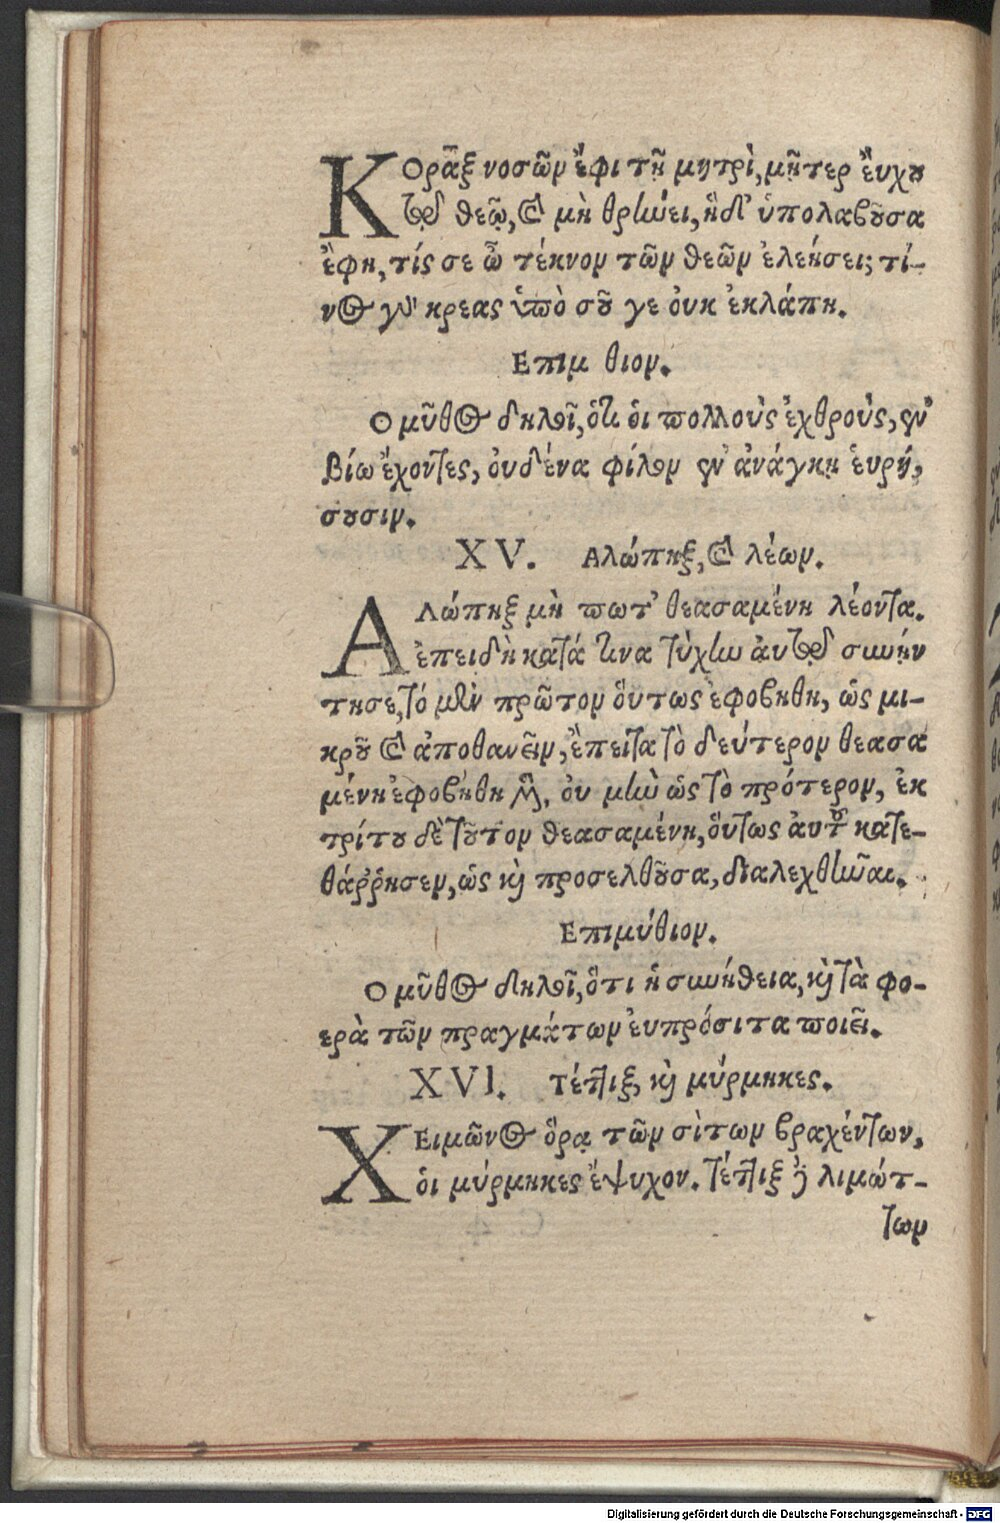 ΚΟρᾶξ νοσῶν ἔφι τῇ μητρὶ, μῆτερ ἔυχου
τῷ θεῷ, καὶ μὴ θρήνει, ἡ δ' ὑπολαβοῦσα
ἔφη, τίς σε ὦ τέκνον τῶν θεῶν ἐλεήσει; τί-
νος γὰρ κρεας ὑπὸ σοῦ γε ὀυκ ἐκλάπη.
Επιμ θιον.
Ο μῦθος δηλοῖ, ὅτι ὁι πολλοὺς ἐχθροὺς, ἐν
βίω ἔχοντες, ὀυδένα φίλον ἐν ἀνάγκῃ ἑυρή,
σουσιν.
XV. Αλώπηξ, καὶ λέων.
ΑΛώπηξ μὴ πωτ' θεασαμένη λέοντα.
ἐπειδὴ κατά τινα τύχην ἀυτῷ συνήν
τησε, τό μὲν πρῶτον ὅυτως ἐφοβήθη, ὡς μι-
κροῦ καὶ ἀποθανεῖν, ἔπειτα τὸ δεύτερον θεασα
μένη ἐφοβήθη μὲν, ὀυ μὴν ὡς τὸ πρότερον, ἐκ
τρίτου δὲ τοῦτον θεασαμένη, ὅυτως ἀυτοῦ κατε-
θάῤῥησεν, ὡς καὶ προσελθοῦσα, διαλεχθῆναι.
Επιμύθιον.
Ο μῦθος δηλοῖ, ὅτι ἡ συνήθεια, καὶ τὰ φο-
ερὰ τῶν πραγμάτων ἐυπρόσιτα ποιεῖ.
XVI. Τέττιξ, καὶ μύρμηκες.
ΧΕιμῶνος ὅρᾳ τῶν σὶτων βραχέντων,
ὁι μύρμηκες ἔψυχον. τέττιξ δὲ λιμώτ-
των
Digitalisierung gefördert durch die Deutsche Forschungsgemeinschaft - DFG